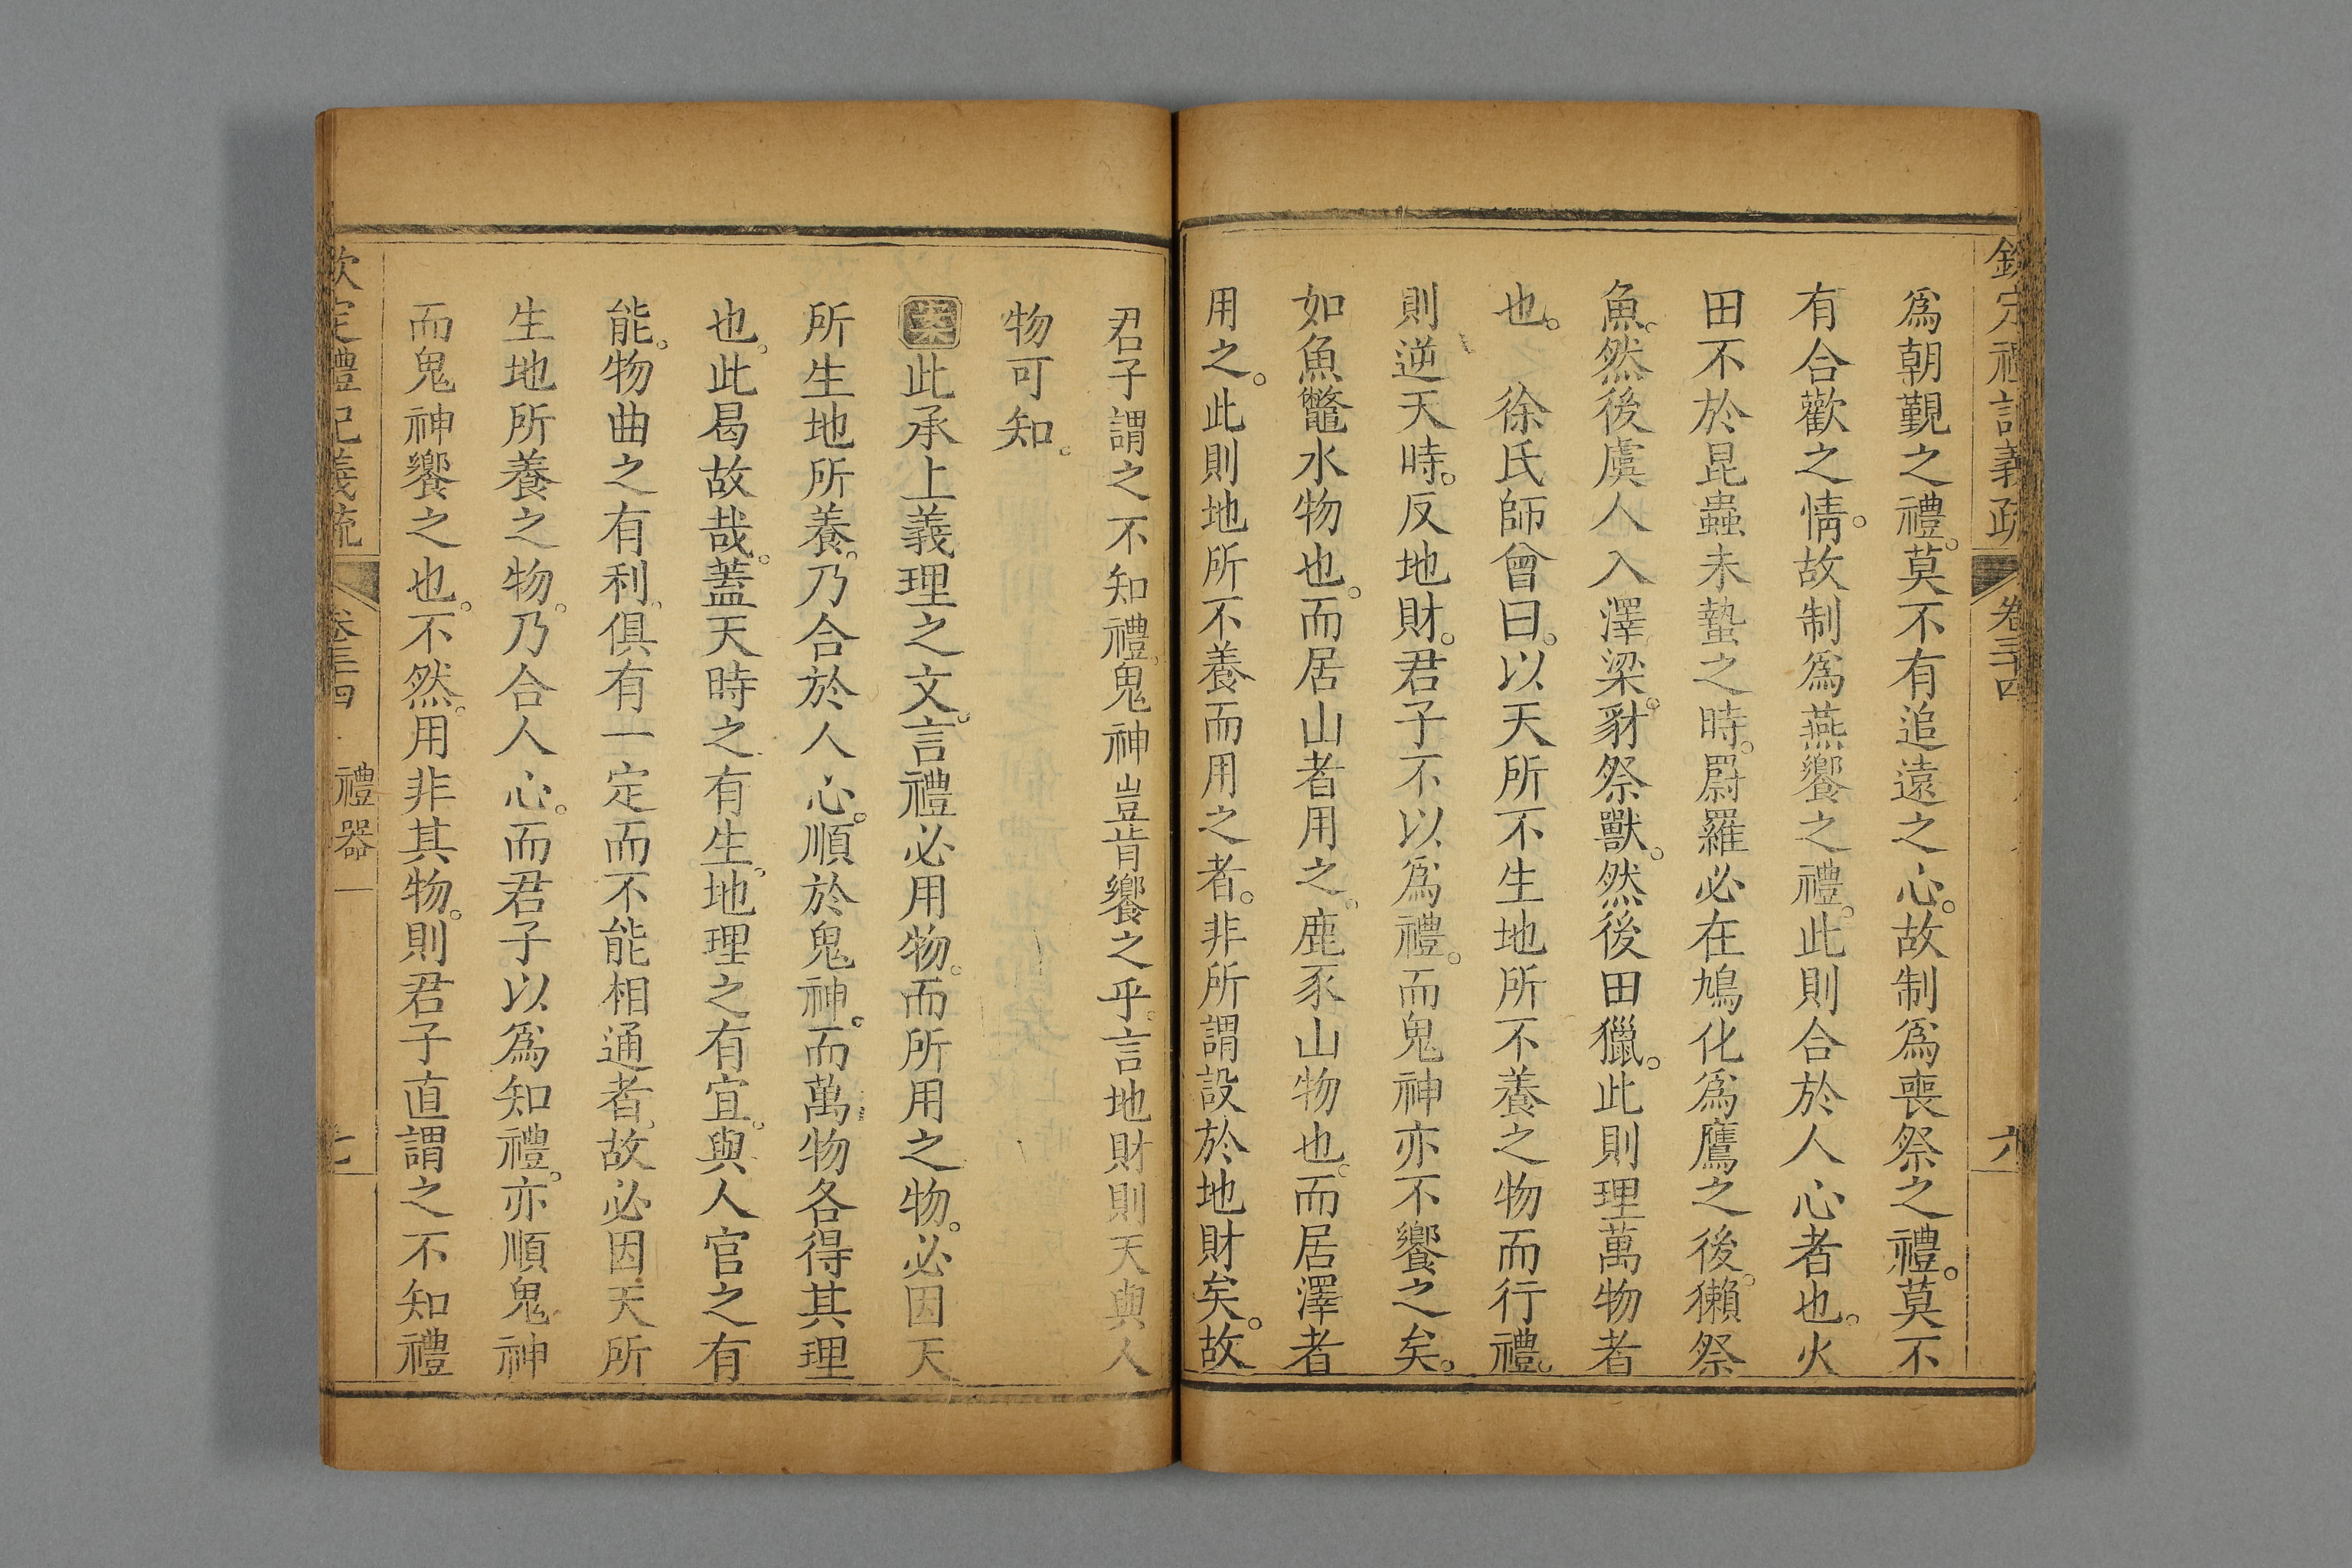 欽定禮記義疏 卷三十四 六
爲朝覲之禮。莫不有追遠之心。故制爲喪祭之禮。莫不
有合歡之情。故制爲燕饗之禮。此則合於人心者也。火
田不於昆蟲未蟄之時。罻羅必在鳩化爲鷹之後。獺祭
魚。然後虞人入澤梁。豺祭獸。然後田獵。此則理萬物者
也。 徐氏師曾曰。以天所不生地所不養之物而行禮。
則逆天時。反地財。君子不以爲禮。而鬼神亦不饗之矣。
如魚鼈水物也。而居山者用之。鹿豕山物也。而居澤者
用之。此則地所不養而用之者。非所謂設於地財矣。故
君子謂之不知禮。鬼神豈肯饗之乎。言地財則天與人
物可知。
案此承上義理之文。言禮必用物。而所用之物。必因天
所生地所養。乃合於人心。順於鬼神。而萬物各得其理
也。此曷故哉。蓋天時之有生。地理之有宜。與人官之有
能。物曲之有利。俱有一定而不能相通者。故必因天所
生地所養之物。乃合人心。而君子以爲知禮。亦順鬼神
而鬼神饗之也。不然。用非其物。則君子直謂之不知禮
欽定禮記義疏 卷三十四 禮器一 七